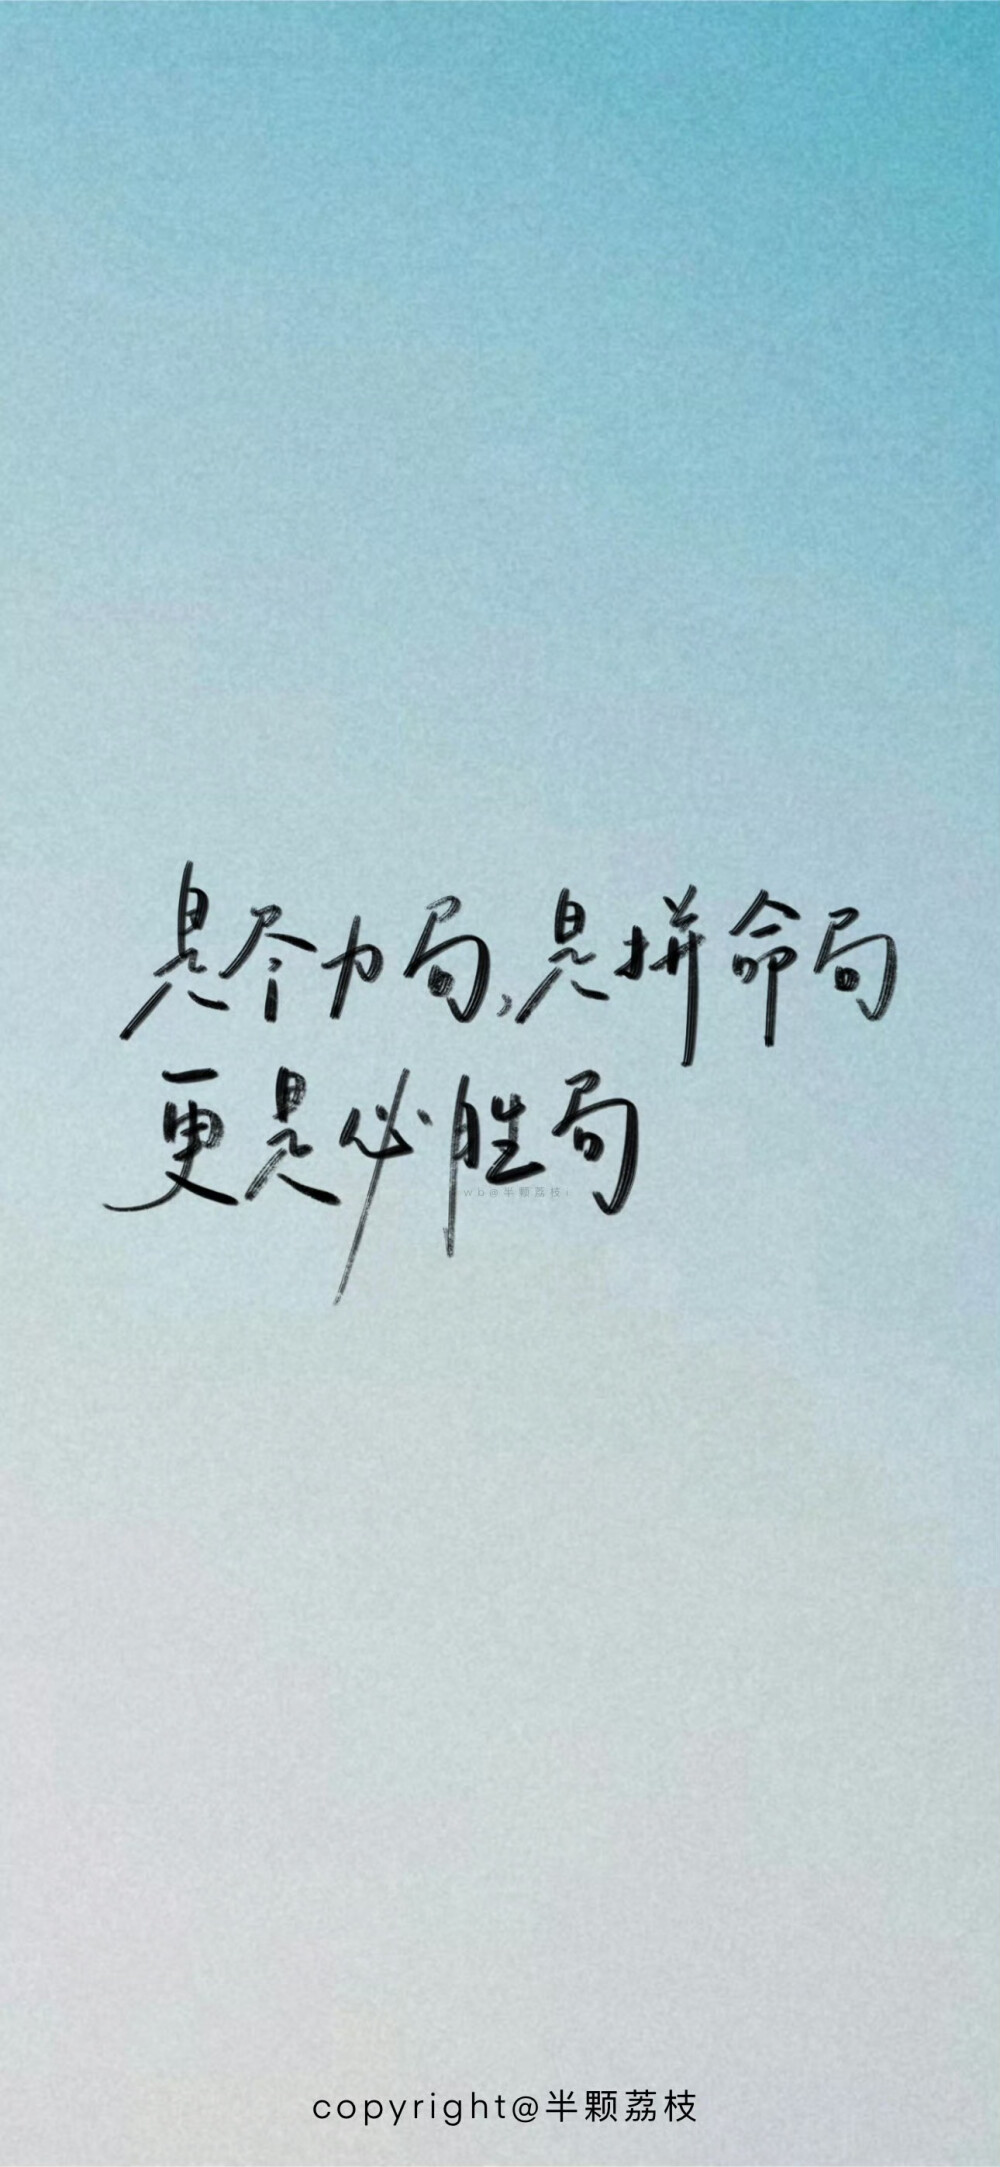 是尽力局,是拼命局
更是必胜局
wb@半颗荔枝
copyright@半颗荔枝